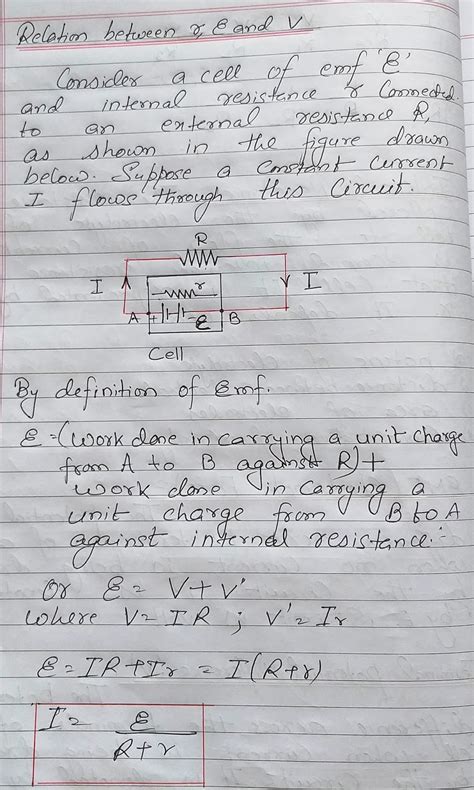 Relation between r, ℰ and V
Consider a cell of emf 'ℰ'
and internal resistance r Connected
to an external resistance R,
as shown in the figure drawn
below. Suppose a constant current
I flows through this Circuit.
R
I
r
I
A + ℰ B
Cell
By definition of emf.
ℰ = (work done in carrying a unit charge
from A to B against R) +
work done in carrying a
unit charge from B to A
against internal resistance.
Or ℰ = V + V'
where V = IR ; V' = Ir
ℰ = IR + Ir = I(R+r)
I = ℰ
R+r